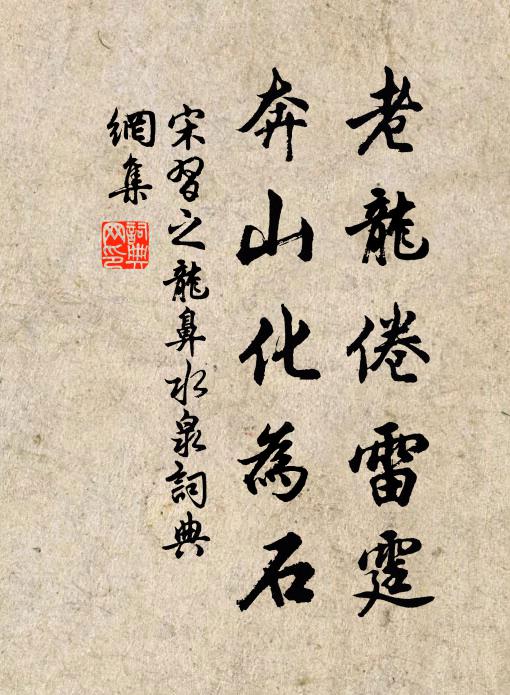 老龍倦雷霆
奔山化為石
宋習之龍鼻水泉詞典
網集
詞典
网印